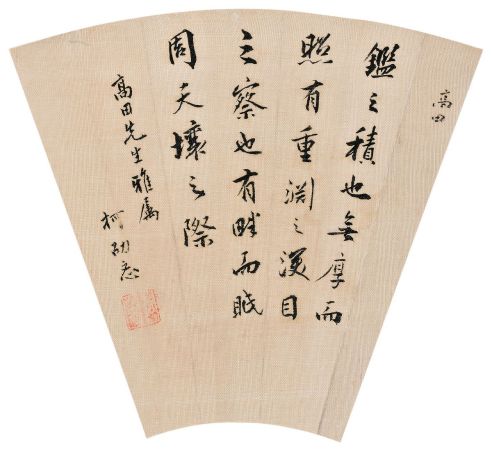 高田
鑑之積也無厚而
照有重淵之深目
之察也有畔而眡
周天壤之際
高田先生雅屬
柯劭忞